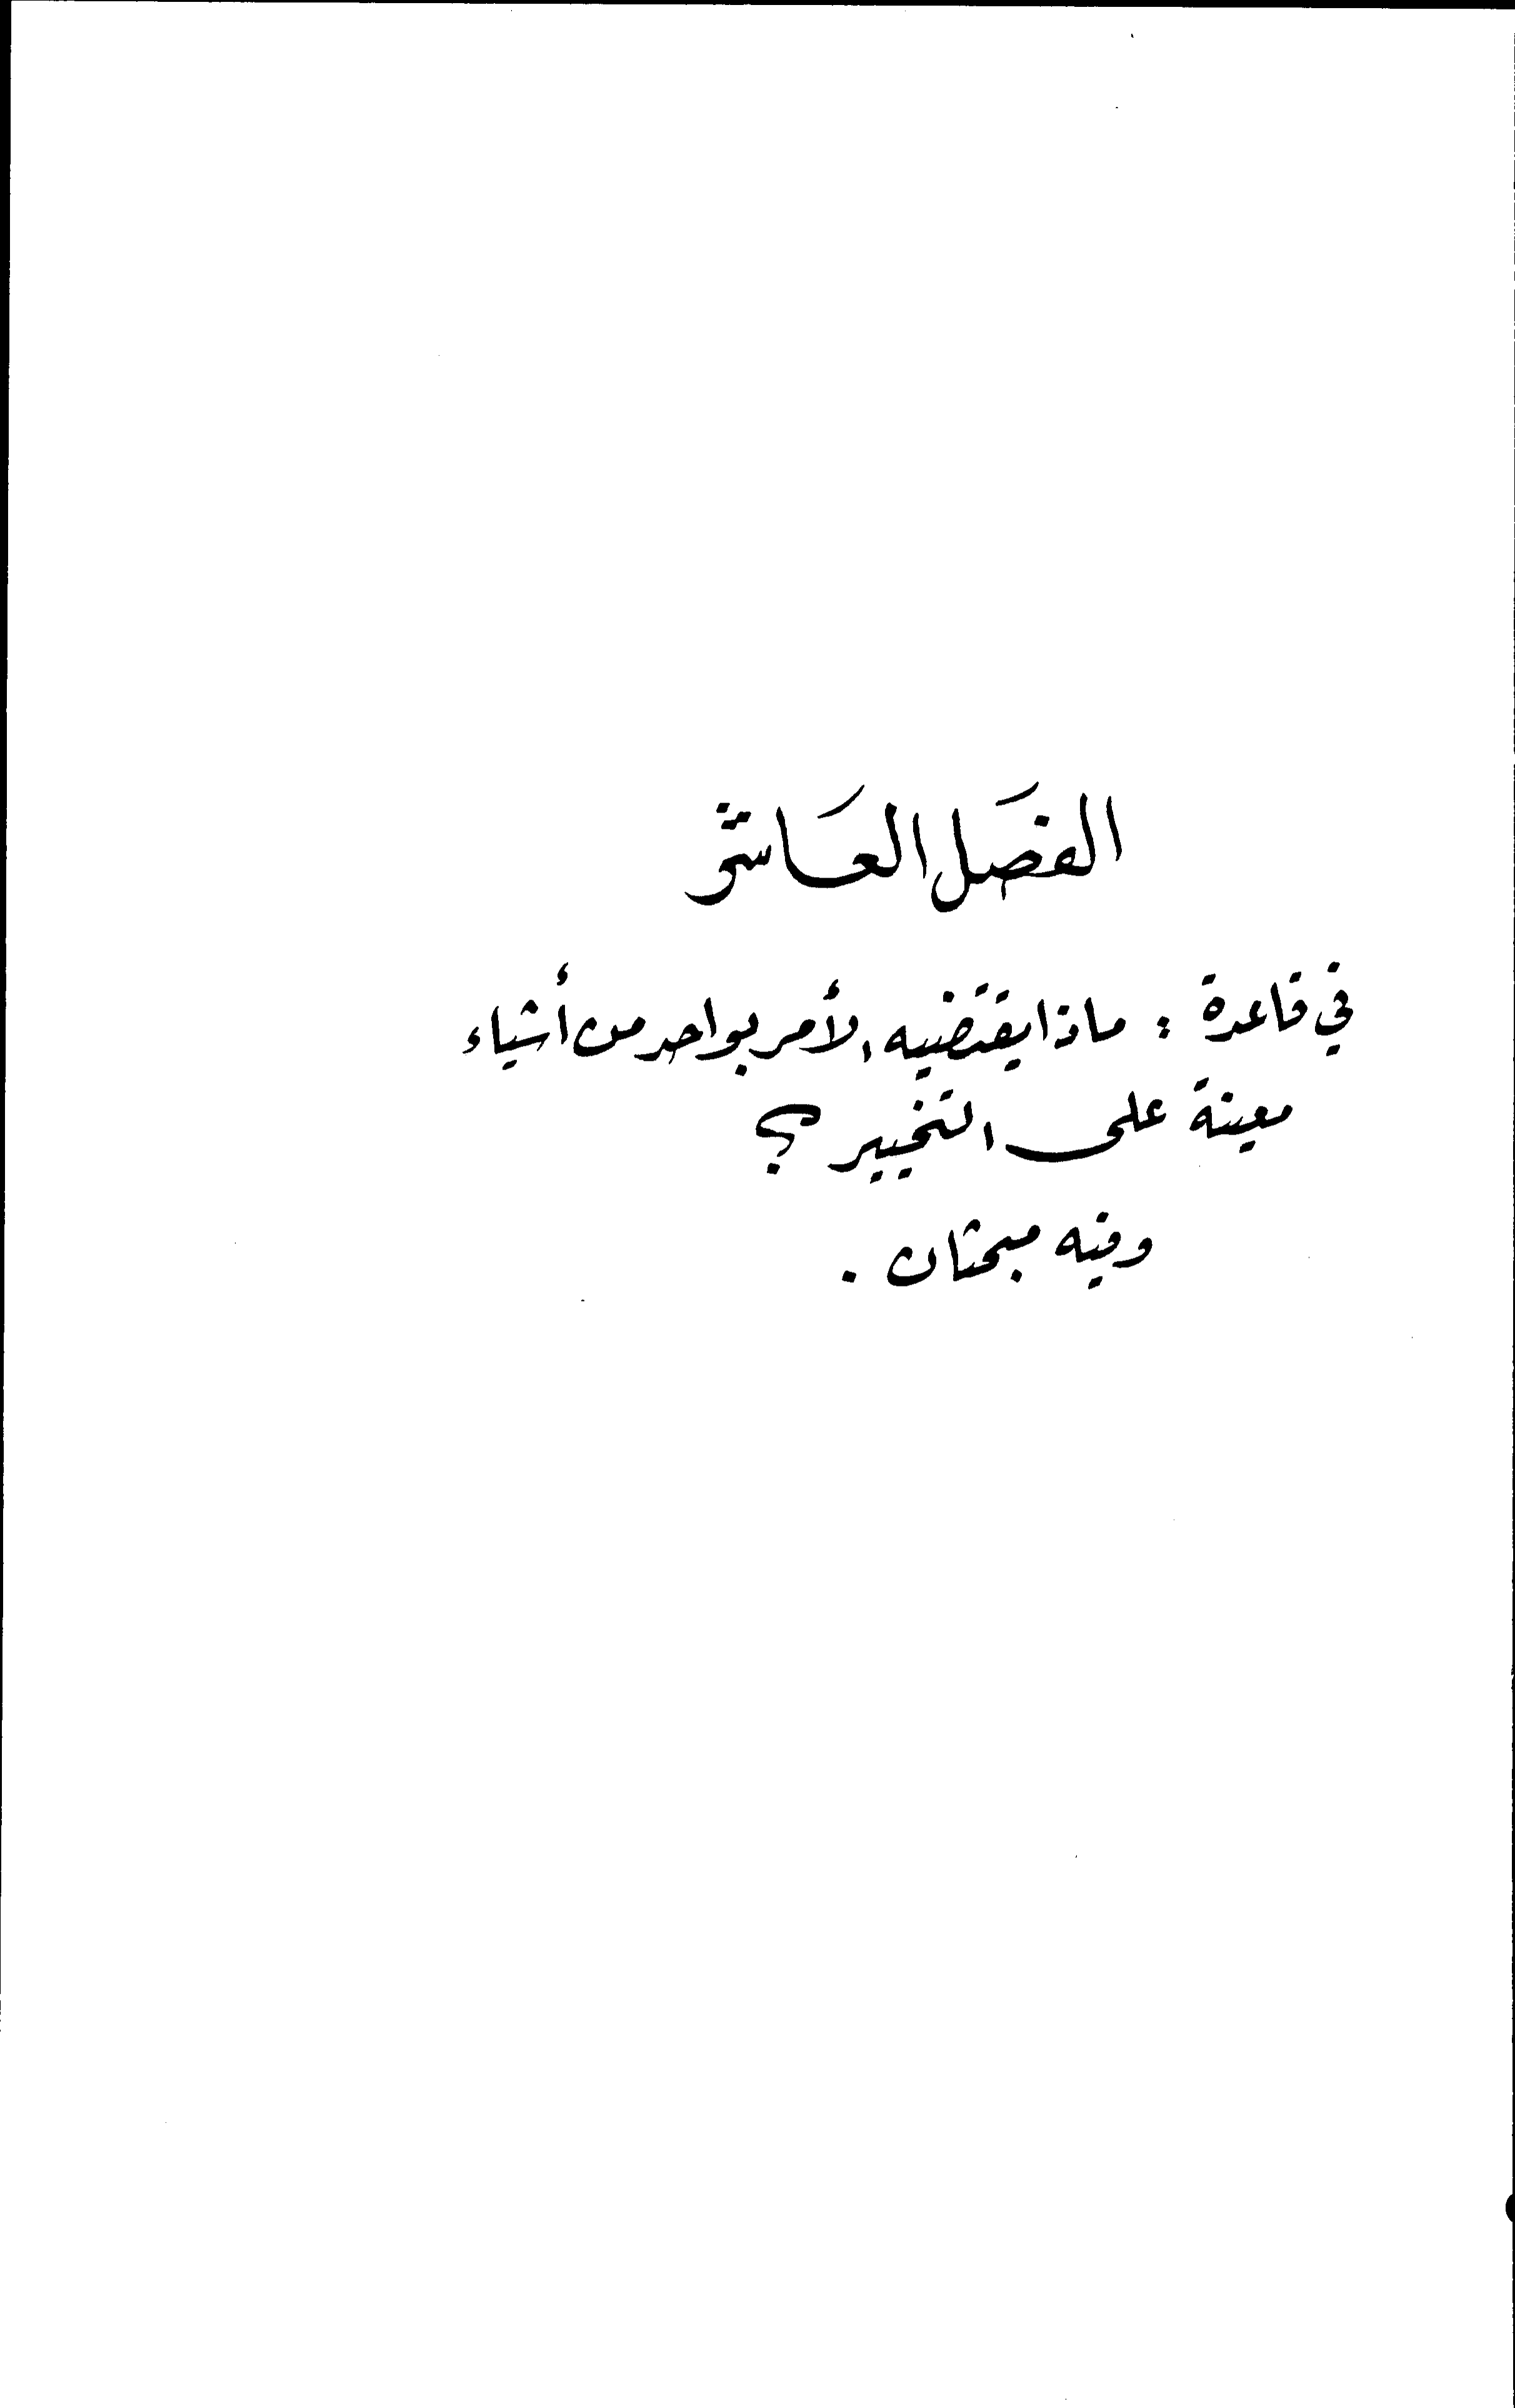 الفصَل العَاشر
في قاعدة : ماذا يقتضيه الأمر بواحد من أشياء
معينة على التخيير ؟
وفيه مبحثان .